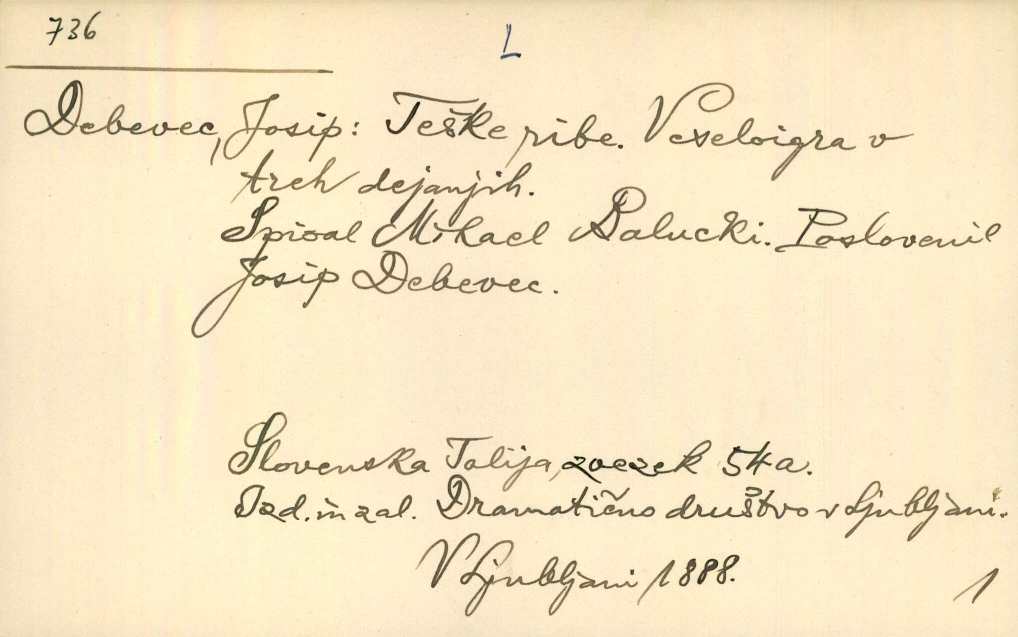 736
L
Debevec, Josip: Teške ribe. Veseloigra v
treh dejanjih.
Spisal Mihael Balucki. Poslovenil
Josip Debevec.
Slovenska Talija, zvezek 54 a.
Izd. in zal. Dramatično društvo v Ljubljani.
V Ljubljani 1888.
1